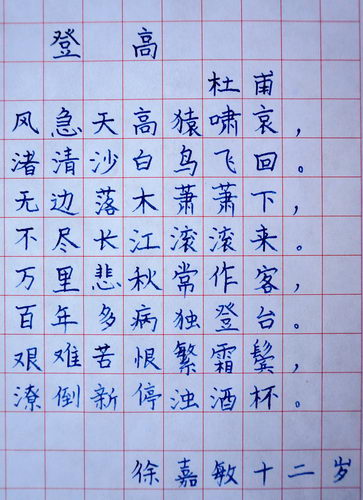 登高
杜甫
风急天高猿啸哀，
渚清沙白鸟飞回。
无边落木萧萧下，
不尽长江滚滚来。
万里悲秋常作客，
百年多病独登台。
艰难苦恨繁霜鬓，
潦倒新停浊酒杯。
徐嘉敏十二岁